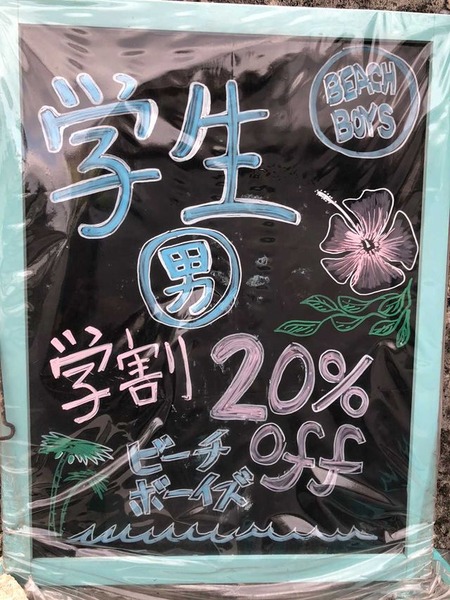 BEACH
BOYS
学生
男
学割 20%
off
ビーチ
ボーイズ